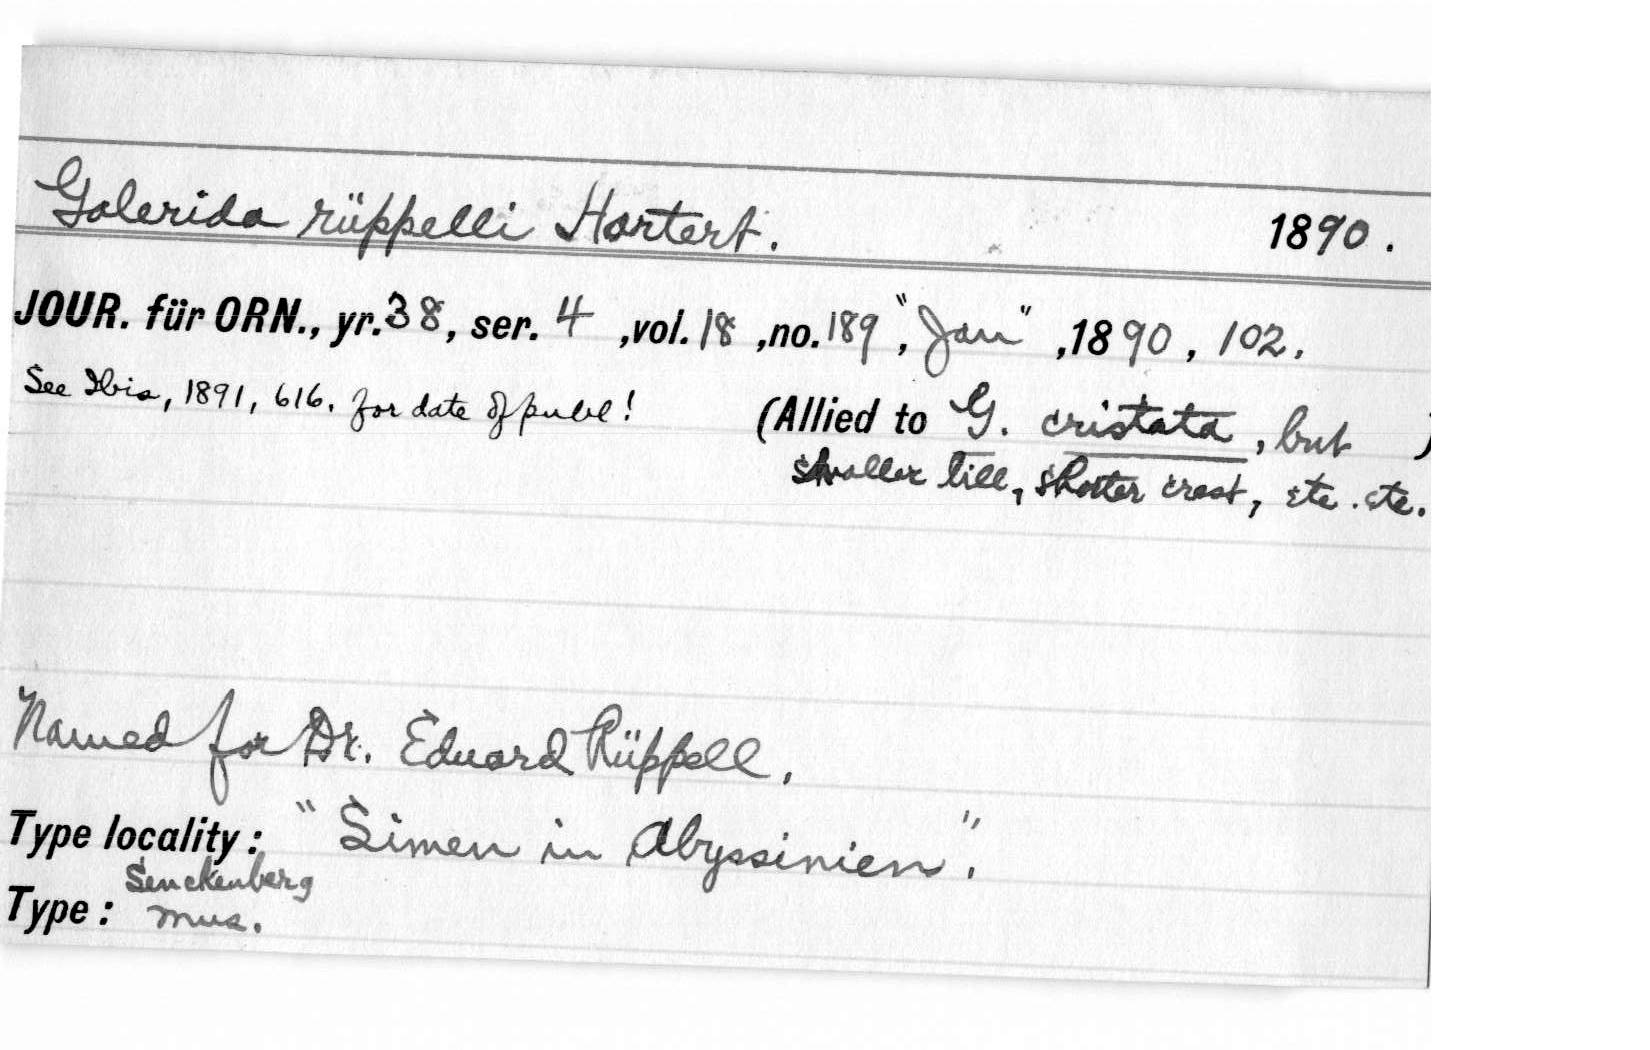 Galerida rüppelli Hartert. 1890.
JOUR. für ORN., yr. 38, ser. 4, vol. 18, no. 189, "Jan", 1890, 102.
See Ibis, 1891, 616. for date of publ! (Allied to G. cristata, but )
smaller bill, shorter crest, etc. etc.
Named for Dr. Eduard Rüppell.
Type locality: "Simen in Abyssinien".
Senckenberg
Type: Mus.